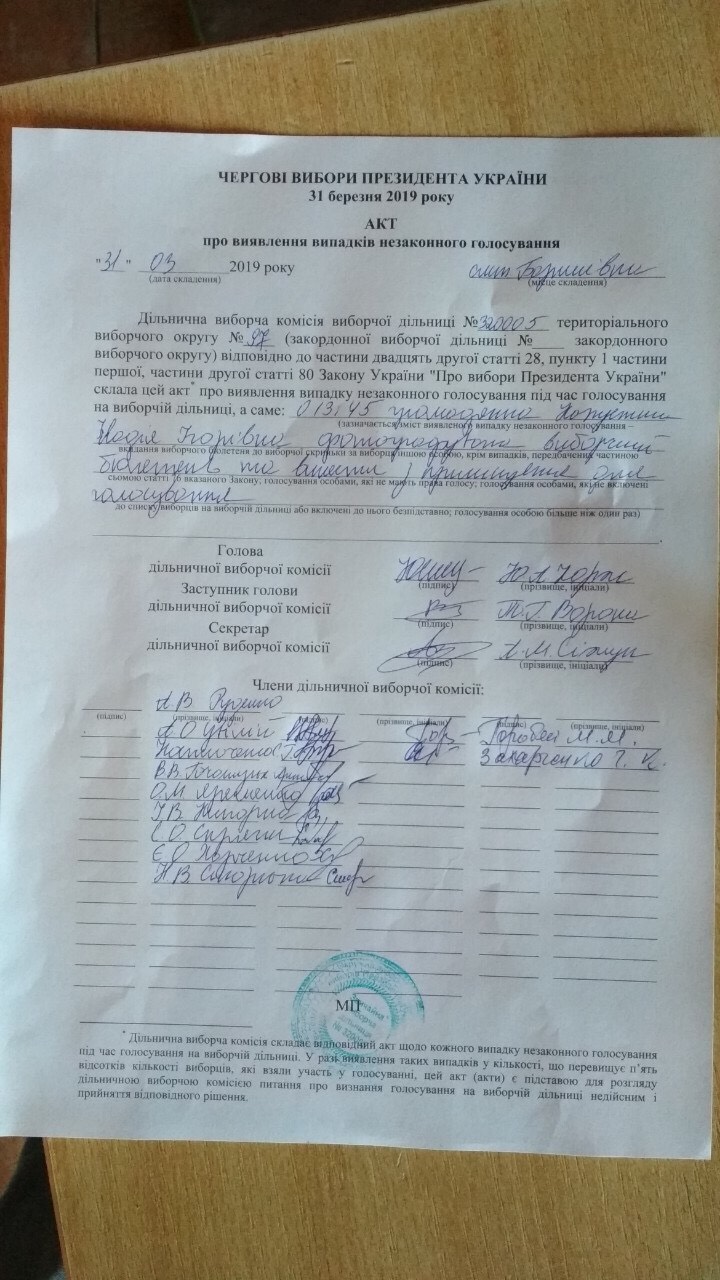 ЧЕРГОВІ ВИБОРИ ПРЕЗИДЕНТА УКРАЇНИ
31 березня 2019 року
АКТ
про виявлення випадків незаконного голосування
"31" 03 2019 року смт Баришівка
(дата складення) (місце складення)
Дільнична виборча комісія виборчої дільниці №320005 територіального
виборчого округу № 97 (закордонної виборчої дільниці №____ закордонного
виборчого округу) відповідно до частини двадцять другої статті 28, пункту 1 частини
першої, частини другої статті 80 Закону України "Про вибори Президента України"
склала цей акт* про виявлення випадку незаконного голосування під час голосування
на виборчій дільниці, а саме: о 13:45 громадянка
(зазначається зміст виявленого випадку незаконного голосування –
Надія Ігорівна фотографувала виборчий
вкидання виборчого бюлетеня до виборчої скриньки за виборця іншою особою, крім випадків, передбачених частиною
бюлетень та з приміщення для
сьомою статті 76 вказаного Закону; голосування особами, які не мають права голосу; голосування особами, які не включені
голосування
до списку виборців на виборчій дільниці або включені до нього безпідставно; голосування особою більше ніж один раз)
Голова
дільничної виборчої комісії Ю.А.
(підпис) (прізвище, ініціали)
Заступник голови
дільничної виборчої комісії Т.Г.
(підпис) (прізвище, ініціали)
Секретар
дільничної виборчої комісії А.М.
(підпис) (прізвище, ініціали)
Члени дільничної виборчої комісії:
А В Руденко
(підпис) (прізвище, ініціали) (підпис) (прізвище, ініціали) (підпис) (прізвище, ініціали)
А О Горобей М.М.
Захарченко Г.
В В
О М Яременко
І В
О
Є О Харченко
Н В
МП
* Дільнична виборча комісія складає відповідний акт щодо кожного випадку незаконного голосування
під час голосування на виборчій дільниці. У разі виявлення таких випадків у кількості, що перевищує п'ять
відсотків кількості виборців, які взяли участь у голосуванні, цей акт (акти) є підставою для розгляду
дільничною виборчою комісією питання про визнання голосування на виборчій дільниці недійсним і
прийняття відповідного рішення.